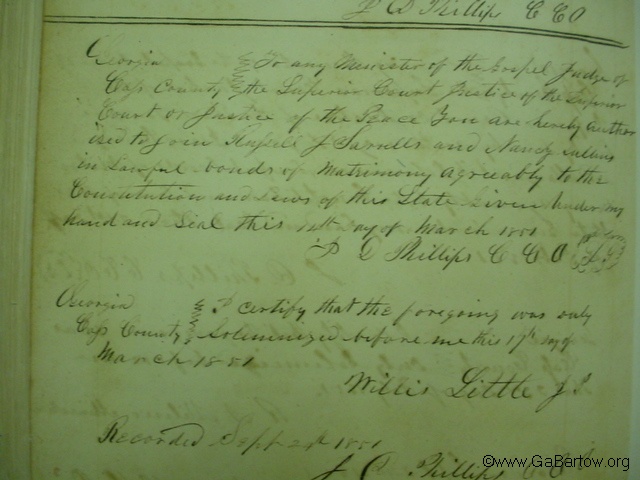 J D Phillips C C O
Georgia To any Minister of the Gospel Judge of
Cass County the Superior Court Justice of the Inferior
Court or Justice of the Peace You are hereby Author
ised to Join J Sarrells and Nancy
in Lawful bonds of Matrimony Agreeably to the
Constitution and Laws of this State Given under my
hand and Seal this day of March 1851
J D Phillips C C O
Georgia I certify that the foregoing was duly
Cass County Solemnized before me this 17th day of
March 1851
Willis Little J.P.
Recorded Sept 1851
J D Phillips C C O
©www.GaBartow.org